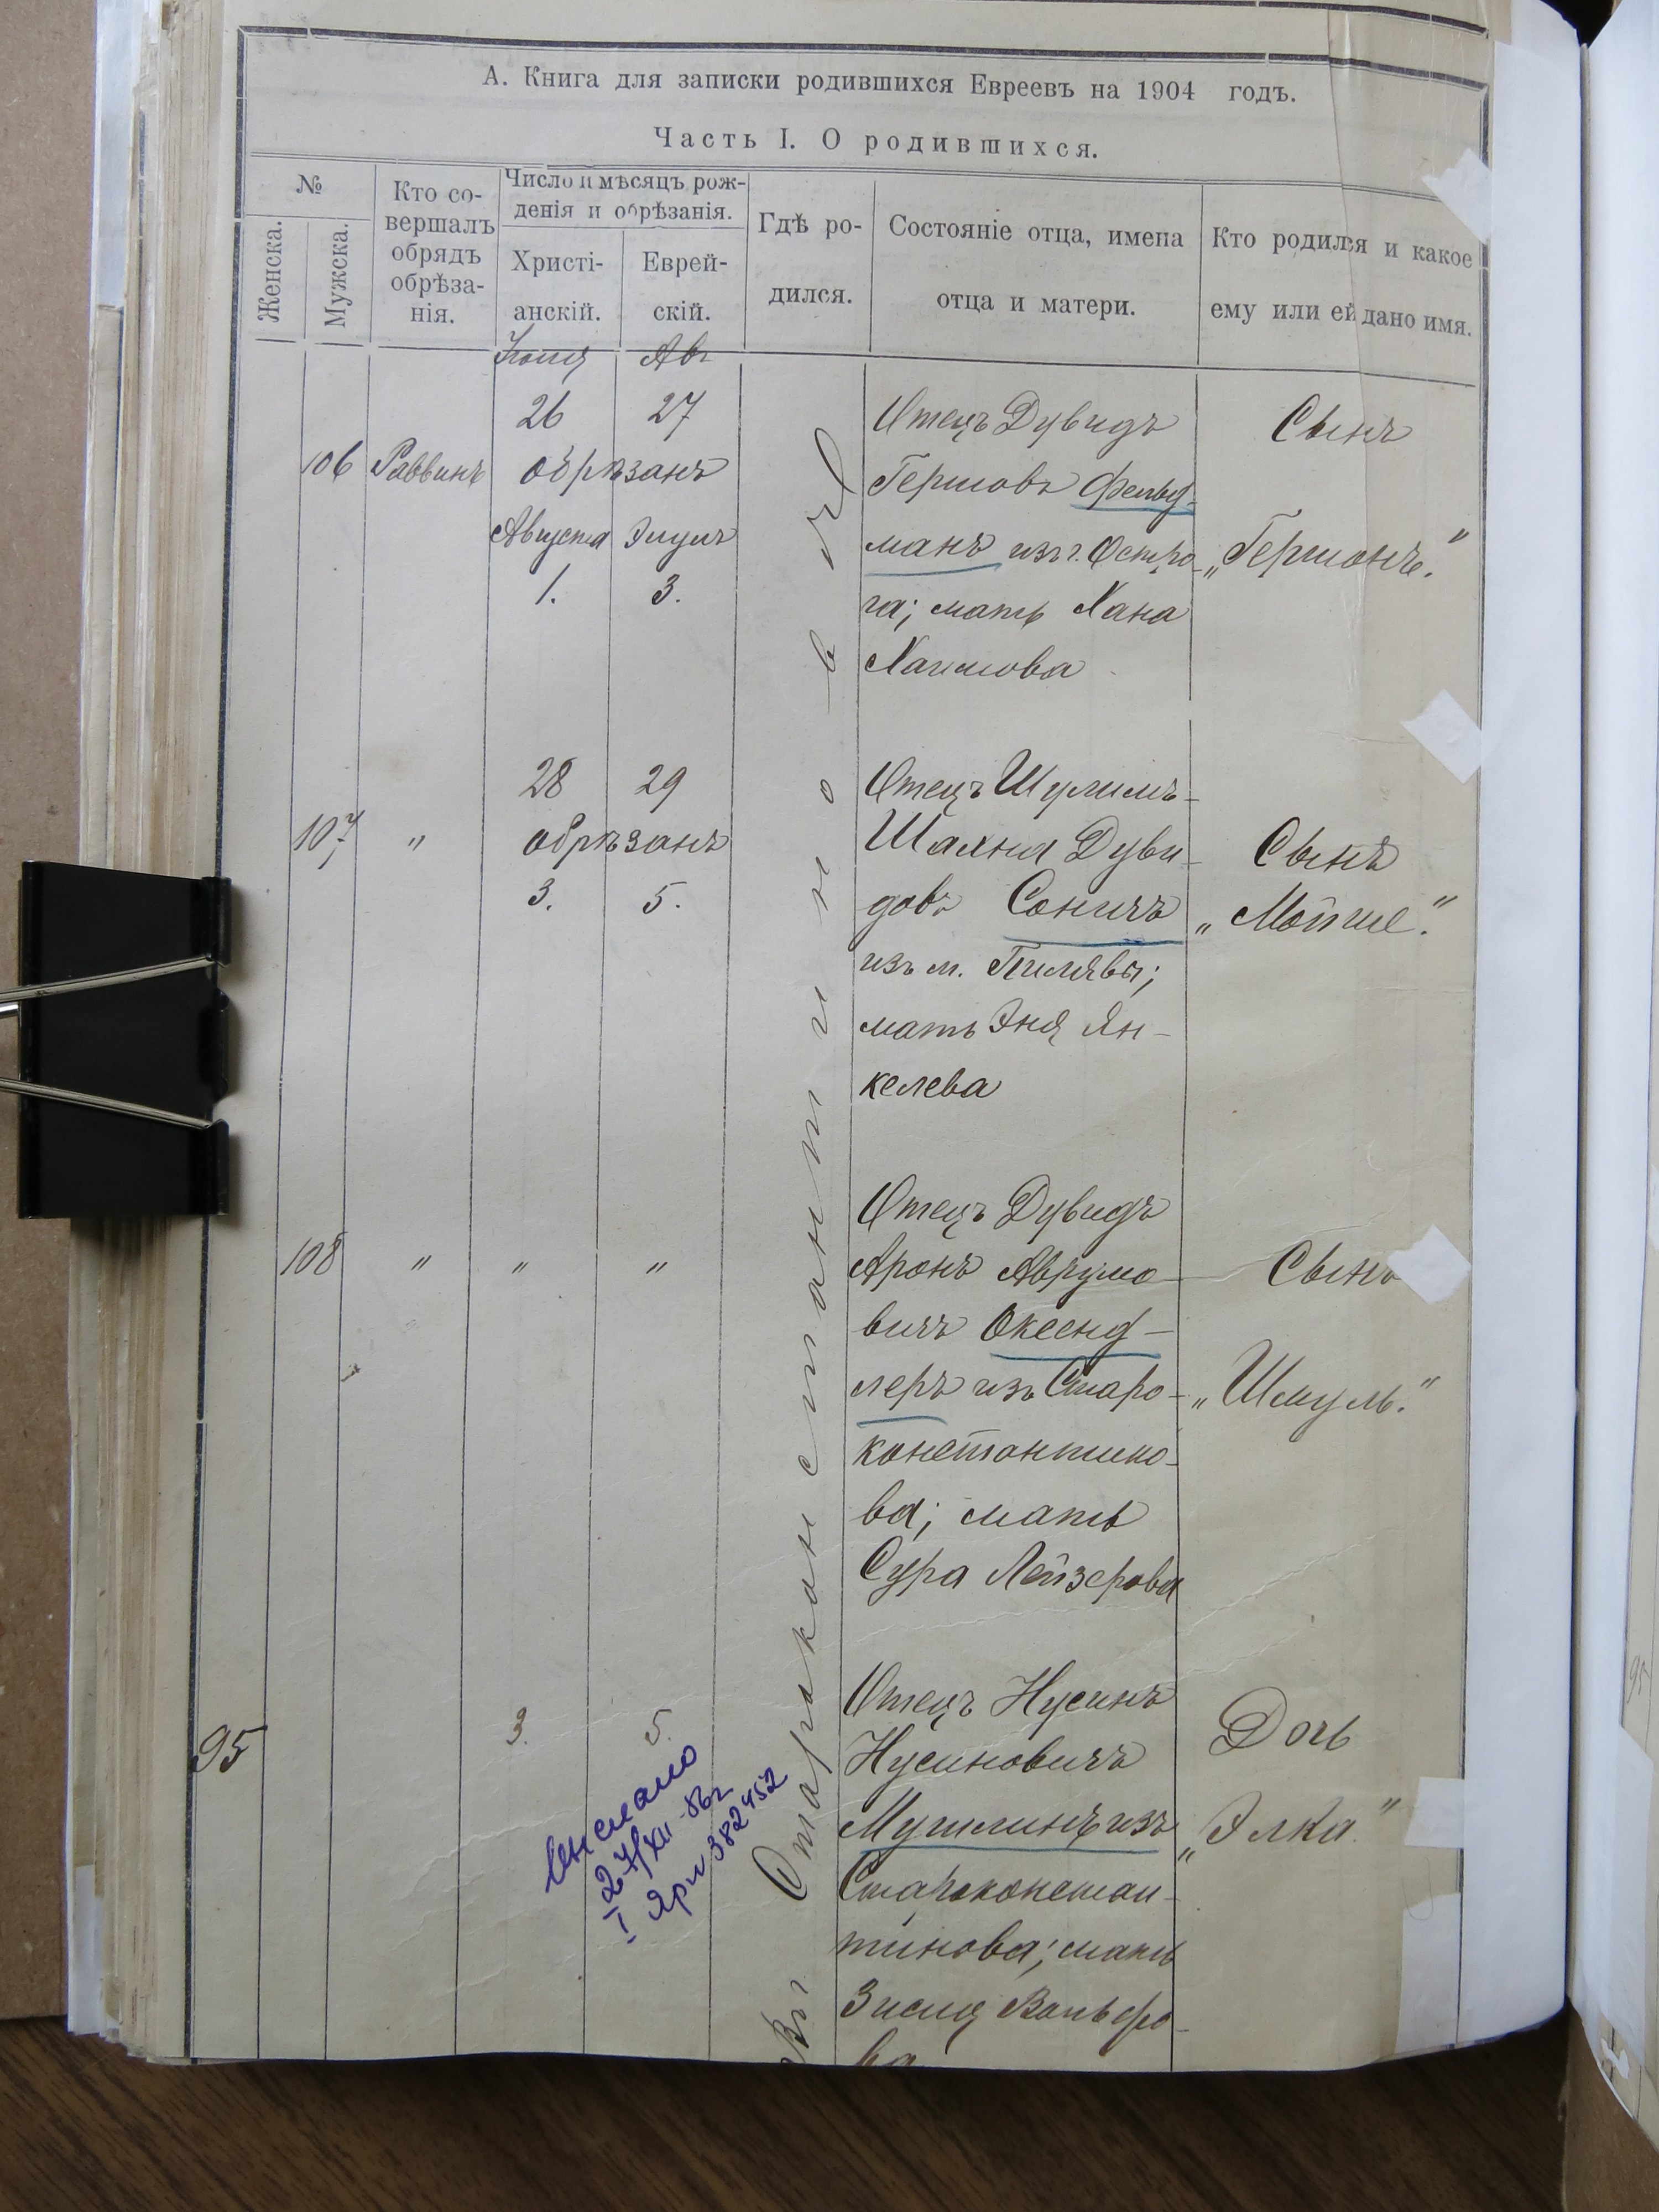 А. Книга для записки родившихся Евреевъ на 1904 годъ.
Часть I. О родившихся.
№
Женска.
Мужска.
Кто со-
вершалъ
обрядъ
обрѣза-
нія.
Число и мѣсяцъ рож-
денія и обрѣзанія.
Христі-
анскій.
Еврей-
скій.
Гдѣ ро-
дился.
Состояніе отца, имена
отца и матери.
Кто родился и какое
ему или ей дано имя.
Ав
106 Раввинъ
26 27
обрѣзанъ
Августа Элулъ
1. 3.
Отецъ Дувидъ
Гершовъ Фельд-
манъ изъ г. Остро-
га; мать Хана
Хаимова
Сынъ
„Гершонъ."
107 "
28 29
обрѣзанъ
3. 5.
Отецъ Шулимъ-
Шахна Дуви-
довъ Соничъ
изъ м. Пилявы;
мать Эня Ян-
келева
Сынъ
„Мойше."
108 " " "
Отецъ Дувидъ
Аронъ Аврумо-
вичъ Оксенд-
леръ изъ Старо-
константино-
ва; мать
Сура Лейзерова
Сынъ
„Шмуль."
95
3. 5.
Отецъ Нусинъ
Нусиновичъ
Мушлинъ изъ
Старокон­стан-
тинова; мать
Зися Вольфо-
ва
Дочь
„Элка."
Въ г. Старокон­стантиновѣ
27/XII-86г
382452
95